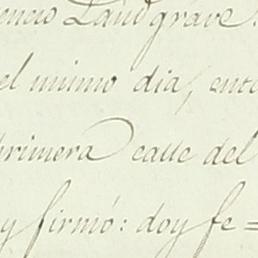 Landgrave
el mismo dia, ent
primera calle del
y firmó: doy fe =